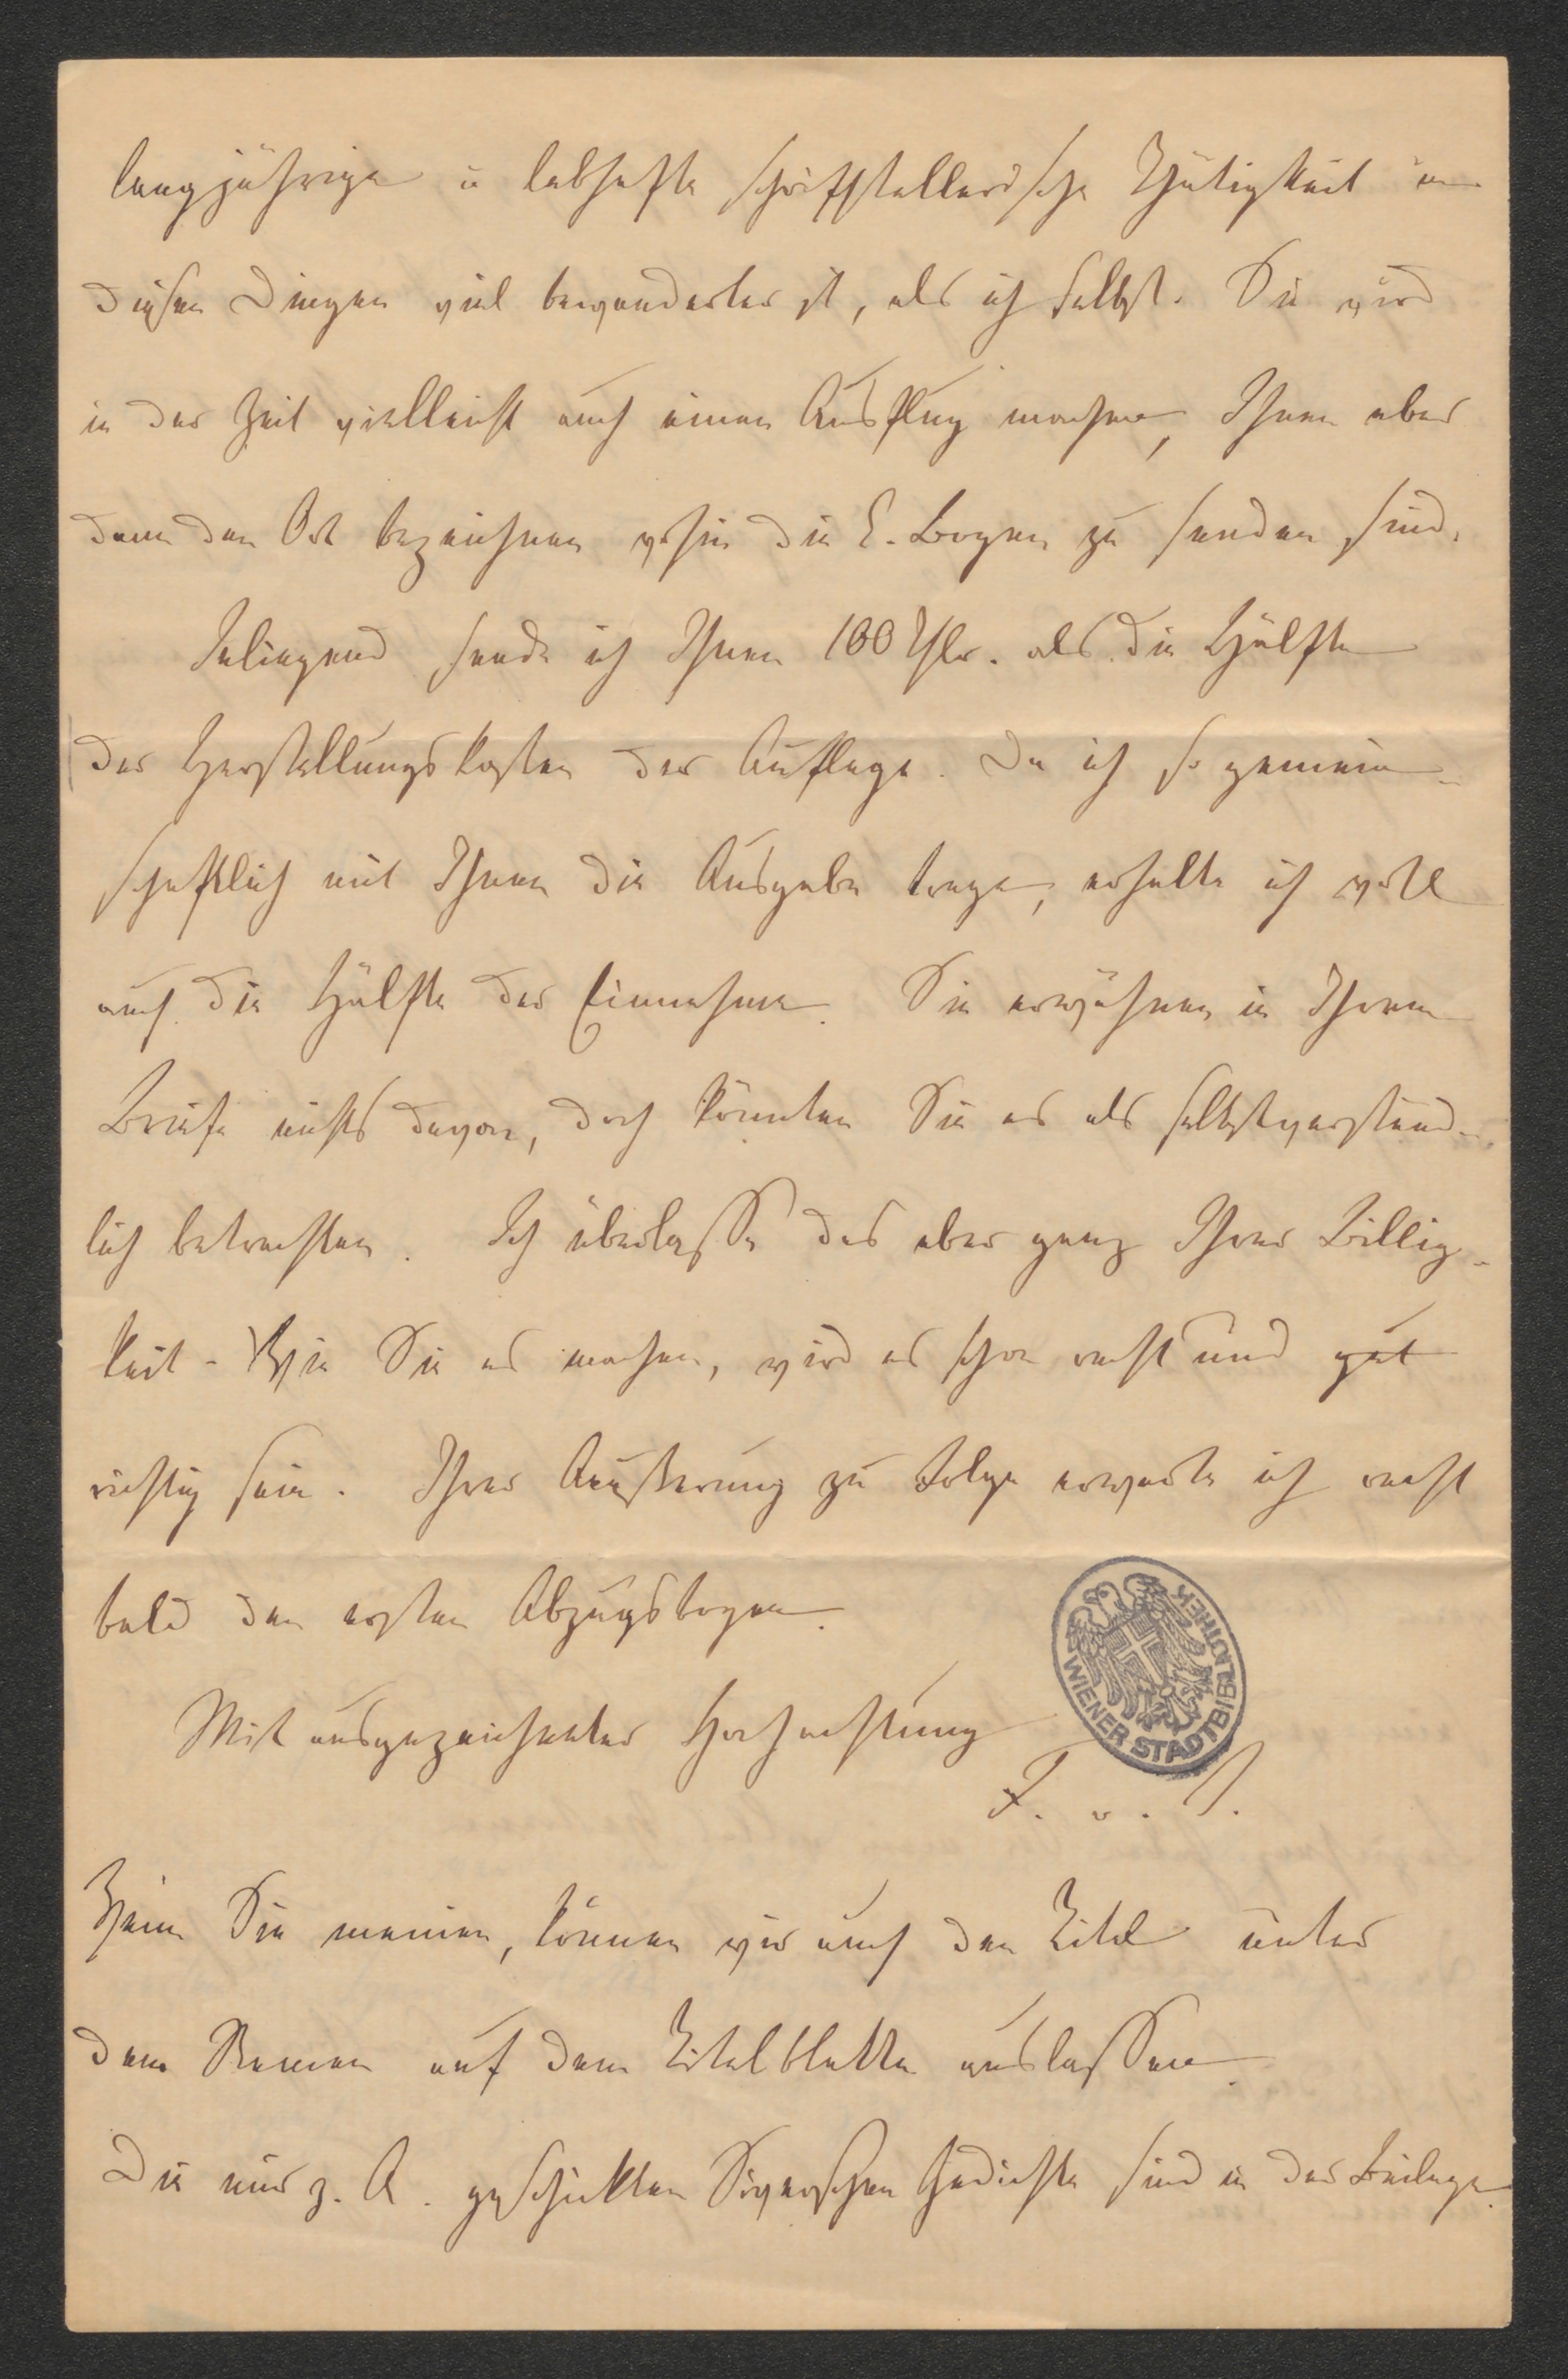 langjährige u lebhafte schriftstellerische Thätigkeit in
diesen Dingen viel bewanderter ist, als ich selbst. Sie wird
in der Zeit vielleicht auch einen Ausflug machen, Ihnen aber
dann den Ort bezeichnen wohin die C. Bogen zu senden sind.
Inliegend sende ich Ihnen 100 Thlr. als die Hälfte
der Herstellungskosten der Auflage. Da ich so gemein-
schaftlich mit Ihnen die Ausgabe trage, erhalte ich wohl
auch die Hälfte der Einnahme. Sie erwähnen in Ihrem
Briefe nichts davon, doch könnten Sie es als selbstverständ-
lich betrachten. Ich überlasse das aber ganz Ihrer Billig-
keit - Wie Sie es machen, wird es schon recht und gut
richtig sein. Ihrer Äußerung zu Folge erwarte ich recht
bald den ersten Abzugsbogen.
Mit ausgezeichneter Hochachtung
F. v.
WIENER STADTBIBLIOTHEK
Wenn Sie meinen, können wir auch den Titel unter
dem Namen auf dem Titelblatte auslassen.
Die mir z. A. geschickten Gedichte sind in der Beilage.